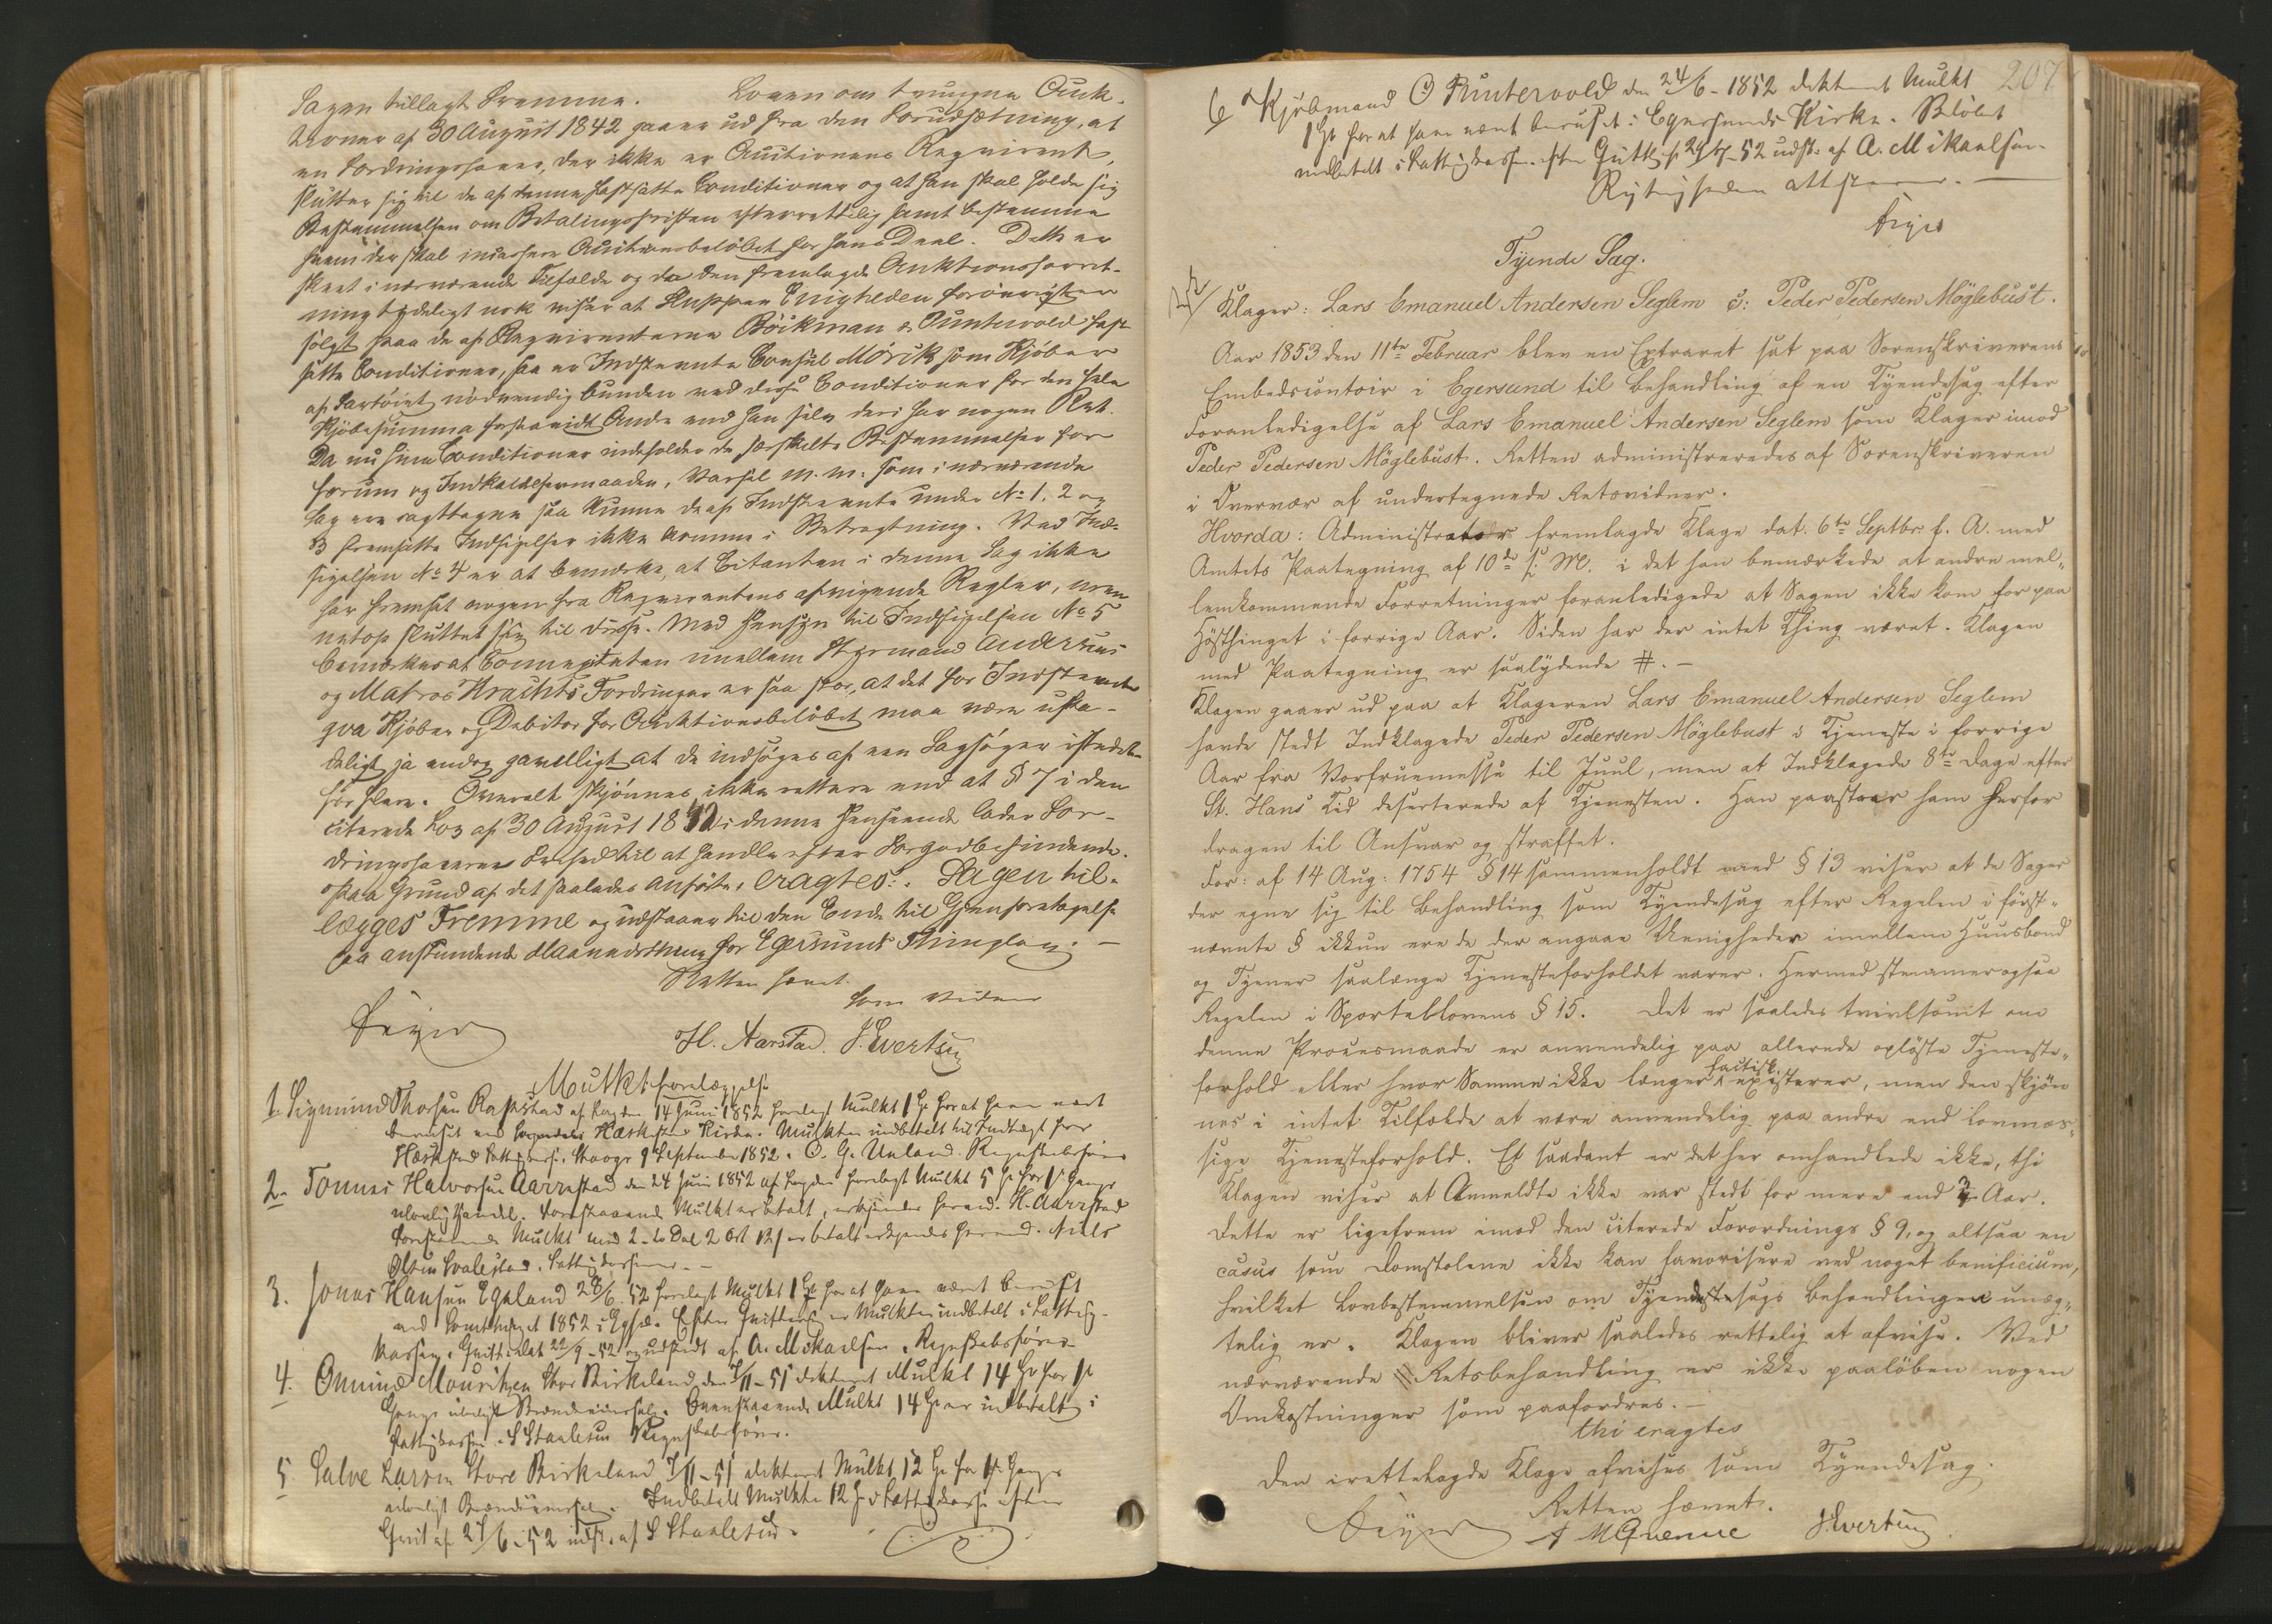 Sagen tillagt Fremme. Loven om tvungne Auk-
tioner af 30 August 1842 gaaer ud fra den Forudsætning, at
en Fordringshaver, der ikke er Auctionens Reqvirent,
slutter sig til de af denne fastsatte Conditioner og at han skal holde sig
Bestemmelsen om Betalingsfristen efterrettelig samt bestemme
hvem der skal incassere Auctionsbeløbet for hans Deel. Dette er
skeet i nærværende Tilfælde og da den fremlagde Auktionsforret-
ning tydeligt nok viser at Skippen Enigheden forøvrigt er
solgt paa de af Reqvirenterne Böikman & Puntervold fast-
satte Conditioner, saa er Indstevnte Consul Mörck som Kjøber
af Fartöiet nödvendig bunden ved disse Conditioner for den hele
Kjöbesumma forsaavidt Andre end han selv deri har nogen Ret.
Da nu hine Conditioner indeholder de særskilte Bestemmelser for
Forum og Indkaldelsesmaaden, Varsel m. m. som i nærværende
Sag ere iagttagne saa kunne de af Indstevnte under No 1, 2 og
3 fremsatte Indsigelser ikke komme i Betragtning. Ved Ind-
sigelsen No 4 er at bemærke, at Citanten i denne Sag ikke
har fremsat nogen fra Reqvirentens afvigende Regler, men
netop sluttet sig til disse. Med Hensyn til Indsigelsen No 5
bemærkes at Connexiteten imellem Styrmand Andersens
og Matros Krachts Fordringer er saa stor, at det for Indstevnte
qva Kjøber og Debitor for Auktionsbeløbet maa være uska-
deligt ja endog gavnligt at de indsöges af een Sagsöger istedet
for flere. Overalt skjönnes ikke rettere end at § 7 i den
citerede Lov af 30 August 1842 i denne Henseende lader For-
dringshaverne Frihed til at handle efter Forgodtbefindende.
Paa Grund af det saaledes anförte, eragtes: Sagen til-
lægges Fremme og udstaaer til den Ende til Gjenforetagelse
paa anstundende Maanedsthing for Egersunds Thinglag. —
Retten hævet.
Feyer
som Vidner
H. Aarstad. J. Evertsen
Mulktforelæggelse
1. Sigmund Thorsen Rapstad af Lagden 14 Juni 1852 forelagt Mulkt 1 Spd for at have været
beruset ved Hæskestad Kirke. Mulkten indbetalt til Indtægt for
Hæskestad Fattigvæsen. 9 September 1852. O. G. Ueland. Regnskabsfører
2. Tönnes Halvorsen Aarrestad den 24 Juni 1852 forelagt Mulkt 5 Spd for 1ste Gangs
ulovlig Handel. Forestaaende Mulkt er betalt, erkjendes herved. H. Aarrestad
Forestaaende Mulkt med 2 2 Ort 12 s er betalt erkjendes herved. Niels
Olsen Svalestad. Fattigkasserer. —
3. Jonas Hansen Egeland 28/6 52 forelagt Mulkt 1 Spd for at have været beruset
ved Sommthinget 1852 i Egersd. Efter Qvittering er Mulkten indbetalt i Fattig-
kassen. Qvitt. dat 22/9 - 52 og udstedt af A. Mikaelsen. Regnskabsfører
4. Omund Mouritzen Store Birkeland den 7/11 - 51 dikteret Mulkt 14 Spd for 1ste
Gangs ulovligt Brændeviinssalg. Ovenstaaende Mulkt 14 Spd er indbetalt i
Fattigkassen. S Staalesen Regnskabsfører.
5. Salve Larsen Store Birkeland 7/11 - 51 dikteret Mulkt 12 Spd for 1ste Gangs
ulovligt Brændeviinssalg. Indbetalt Mulkten 12 Spd i Fattigkassen efter
Qvit af 27/6 - 52 udst. af S Staalesen.
207
6 Kjøbmand O Puntervold den 24/6 - 1852 dikteret Mulkt
1 Spd for at have været beruset i Egersunds Kirke. Beløbet
indbetalt i Fattigkassen efter Qvittg af 29/7 - 52 udst. af A. Mikaelsen.
Rigtigheden attesterer. —
Feyer
Tyende Sag.
Klager: Lars Emanuel Andersen Seglem c: Peder Pedersen Möglebust.
Aar 1853 den 11te Februar blev en Extraret sat paa Sorenskriverens
Embedscontoir i Egersund til Behandling af en Tyendesag efter
Foranledigelse af Lars Emanuel Andersen Seglem som Klager imod
Peder Pedersen Möglebust. Retten administreredes af Sorenskriveren
i Overvær af undertegnede Retsvidner.
Hvorda: Administrator fremlagde Klage dat. 6te Septbr. f. A. med
Amtets Paategning af 10de s. M. i det han bemærkede at andre mel-
lemkommende Forretninger foranledigede at Sagen ikke kom for paa
Høstthinget i forrige Aar. Siden har der intet Thing været. Klagen
med Paategning er saalydende #. —
Klagen gaaer ud paa at Klageren Lars Emanuel Andersen Seglem
havde stedt Indklagede Peder Pedersen Möglebust i Tjeneste i forrige
Aar fra Vorfruemesse til Juul, men at Indklagede 8te Dage efter
St. Hans Tid deserterede af Tjenesten. Han paastaaer ham herfor
dragen til Ansvar og straffet.
For: af 14 Aug: 1754 § 14 sammenholdt med § 13 viser at de Sager
der egne sig til Behandling som Tyendesag efter Regelen i först-
nævnte § ikkun ere de der angaae Uenigheder imellem Huusbond
og Tjener saalænge Tjenesteforholdet varer. Hermed stemmer ogsaa
Regelen i Sportelslovens § 15. Det er saaledes tvivlsomt om
denne Procesmaade er anvendelig paa allerede oplöste Tjeneste-
forhold eller hvor Samme ikke længer factisk existerer, men den skjön
nes i intet Tilfælde at være anvendelig paa andre end lovmæs-
sige Tjenesteforhold. Et saadant er det her omhandlede ikke, thi
Klagen viser at Anmeldte ikke var stedt for mere end Aar.
Dette er ligefrem imod den citerede Forordnings § 9, og altsaa en
casus som Domstolene ikke kan favorisere ved noget benificium,
hvilket Lovbestemmelsen om Tyendesags Behandlingen unæg-
telig er. Klagen bliver saaledes rettelig at afvise. Ved
nærværende Retsbehandling er ikke paalöben nogen
Omkostninger som paafordres. —
thi eragtes
Den irettelagde Klage afvises som Tyendesag.
Retten hævet.
Feyer A M Qvenue J. Evertsen.